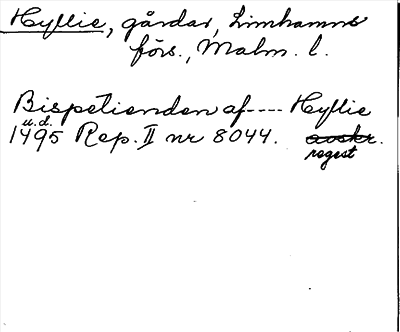 Hyllie, gårdar, Limhamns
förs., Malm. l.
Bispetienden af---- Hyllie
u.d.
1495 Rep. II nr 8044. avskr.
regest